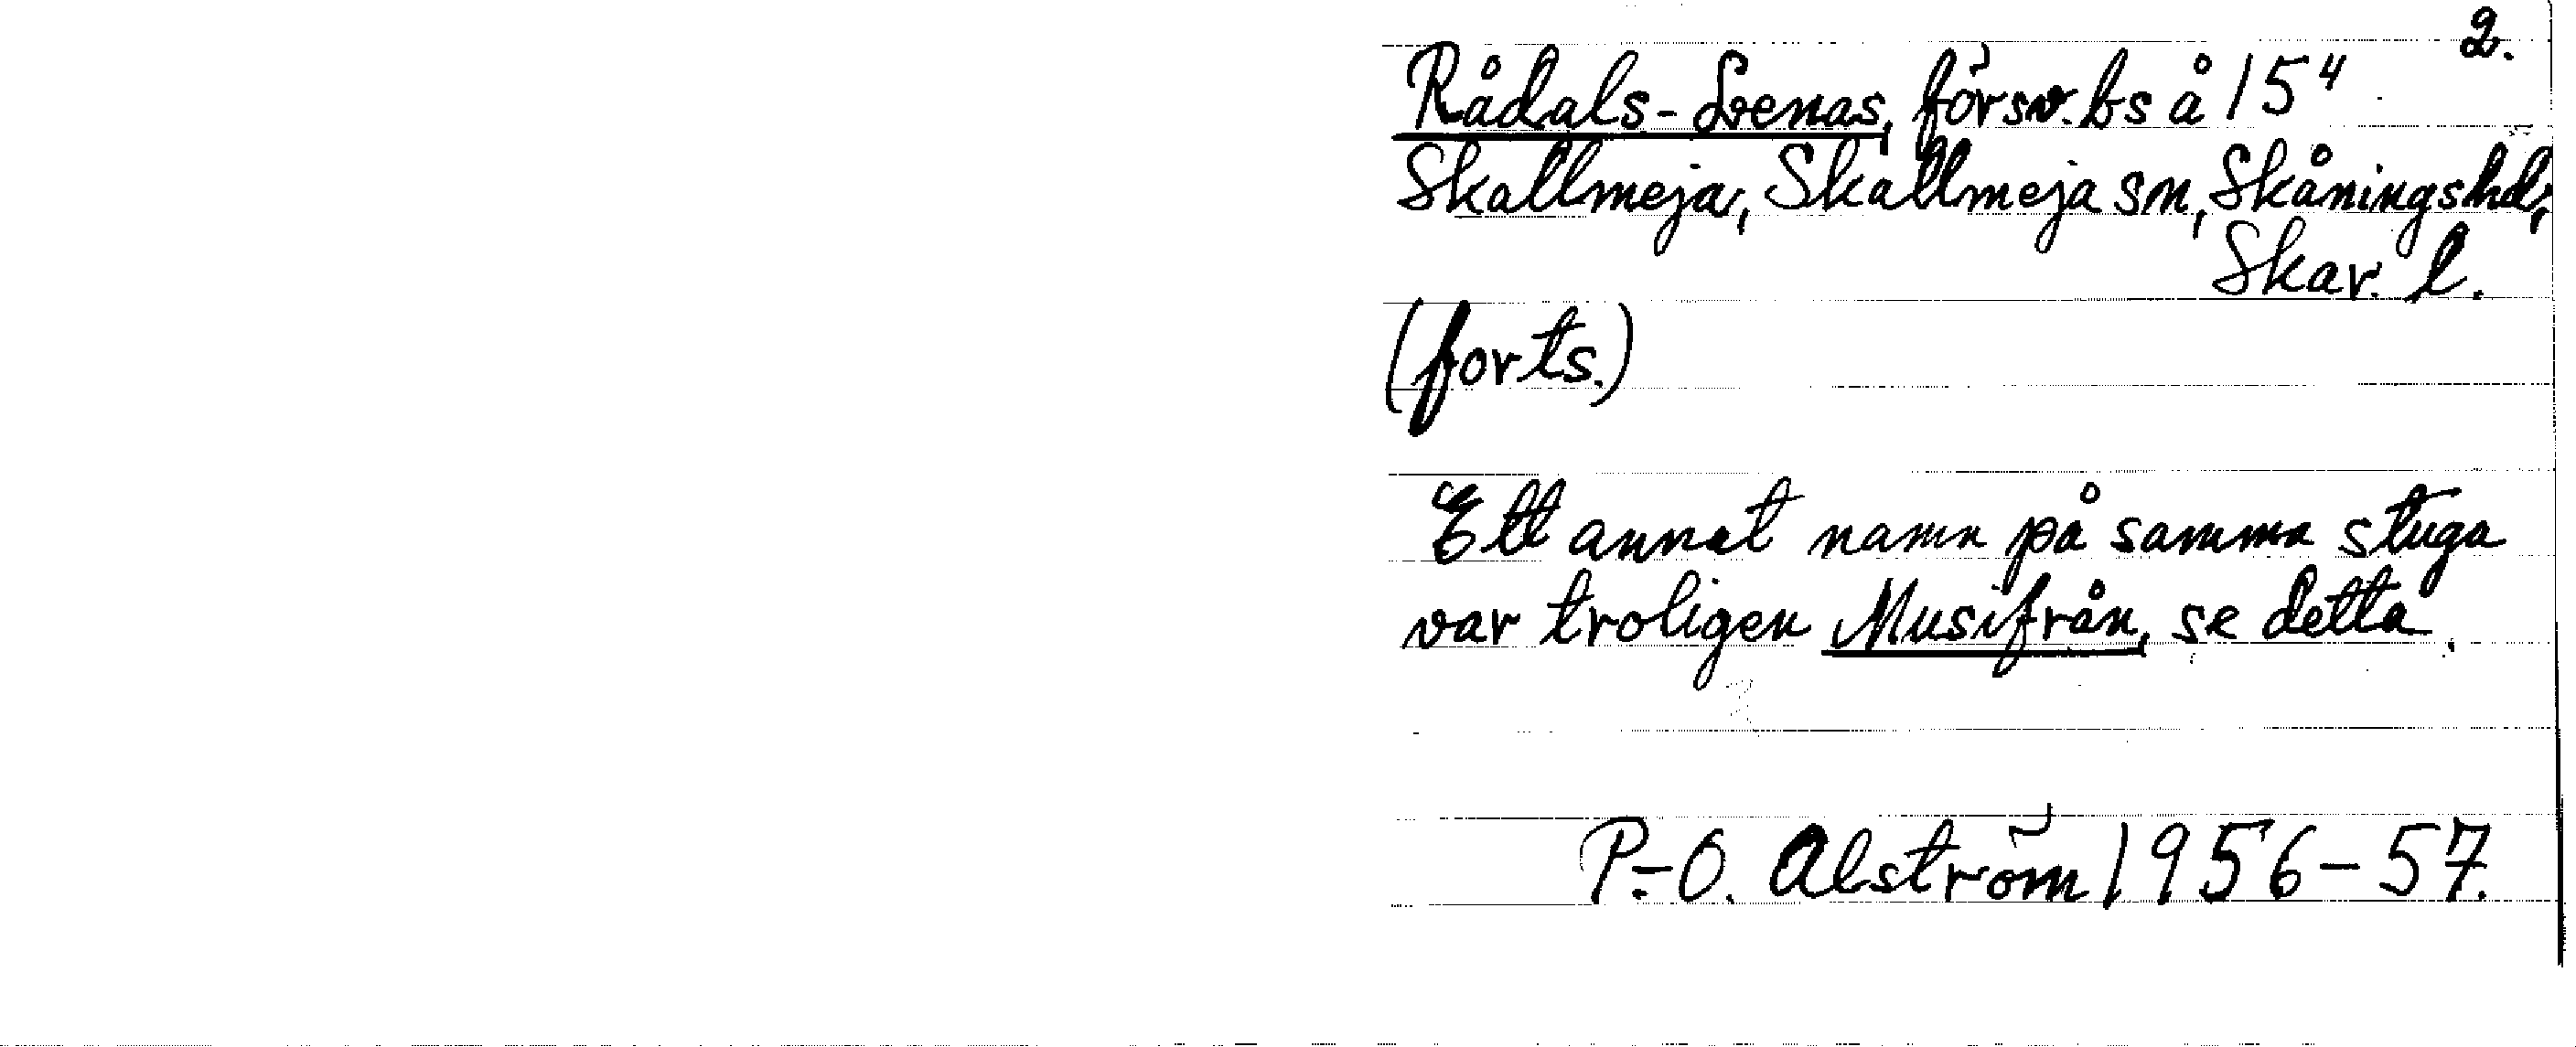 2.
Rådals-Lenas, försv. bs å 15⁴
Skallmeja, Skallmeja sn, Skånings hd,
Skar. l.
(forts.)
Ett annat namn på samma stuga
var troligen Musifrån, se detta.
P.-O. Alström 1956-57.